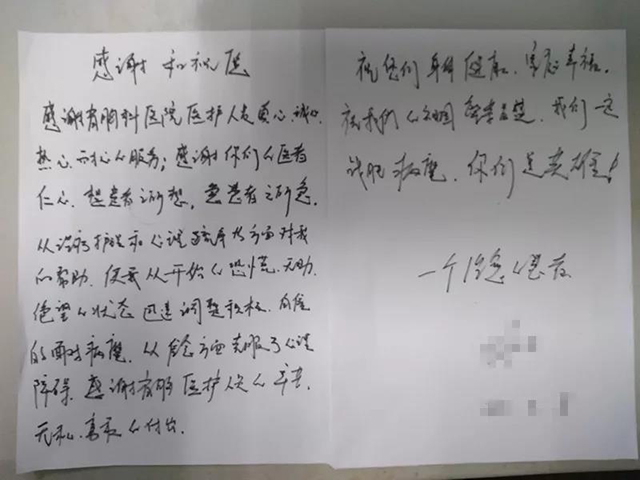 感谢和祝愿
感谢有胸科医院医护人员真心、诚心、
热心、耐心的服务；感谢你们的医者
仁心、想患者之所想，急患者之所急。
从治疗护理和心理疏导等方面对我
的帮助，使我从开始的恐慌、无助、
绝望的状态迅速调整积极、自信
的面对病魔，从各方面克服了心理
障碍。感谢有你医护人员的辛苦、
无私、真爱的付出。
祝您们身体健康、家庭幸福。
祝我们的祖国繁荣昌盛。我们一定
战胜病魔，你们是英雄！
一个 的患者